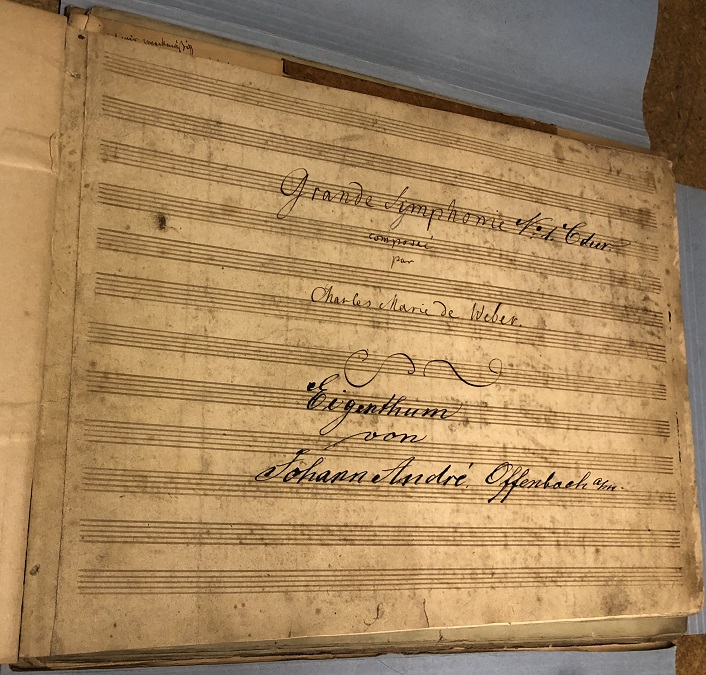 Grande Symphonie No. 1. Cdur.
composée
par
Charles Marie de Weber.
Eigenthum
von
Johann André, Offenbach a/m.